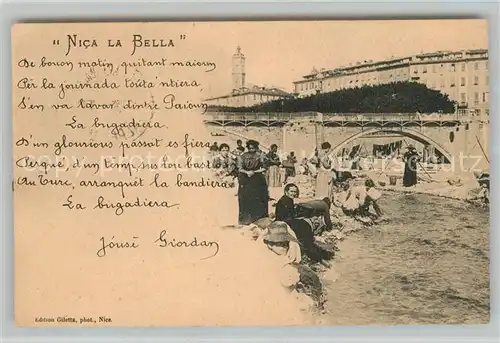 "NIÇA LA BELLA"
De bouon matin, quitant maioun
Per la journada touta 'ntiera,
S'en va lavar dintre Paioun
La bugadiera.
D'un glourious passat es fiera
Perqué, d'un temp, sus lou bastioun
Au Turc, arranquet la bandiera
La bugadiera.
Jóusé Giordan
Edition Giletta, phot., Nice.